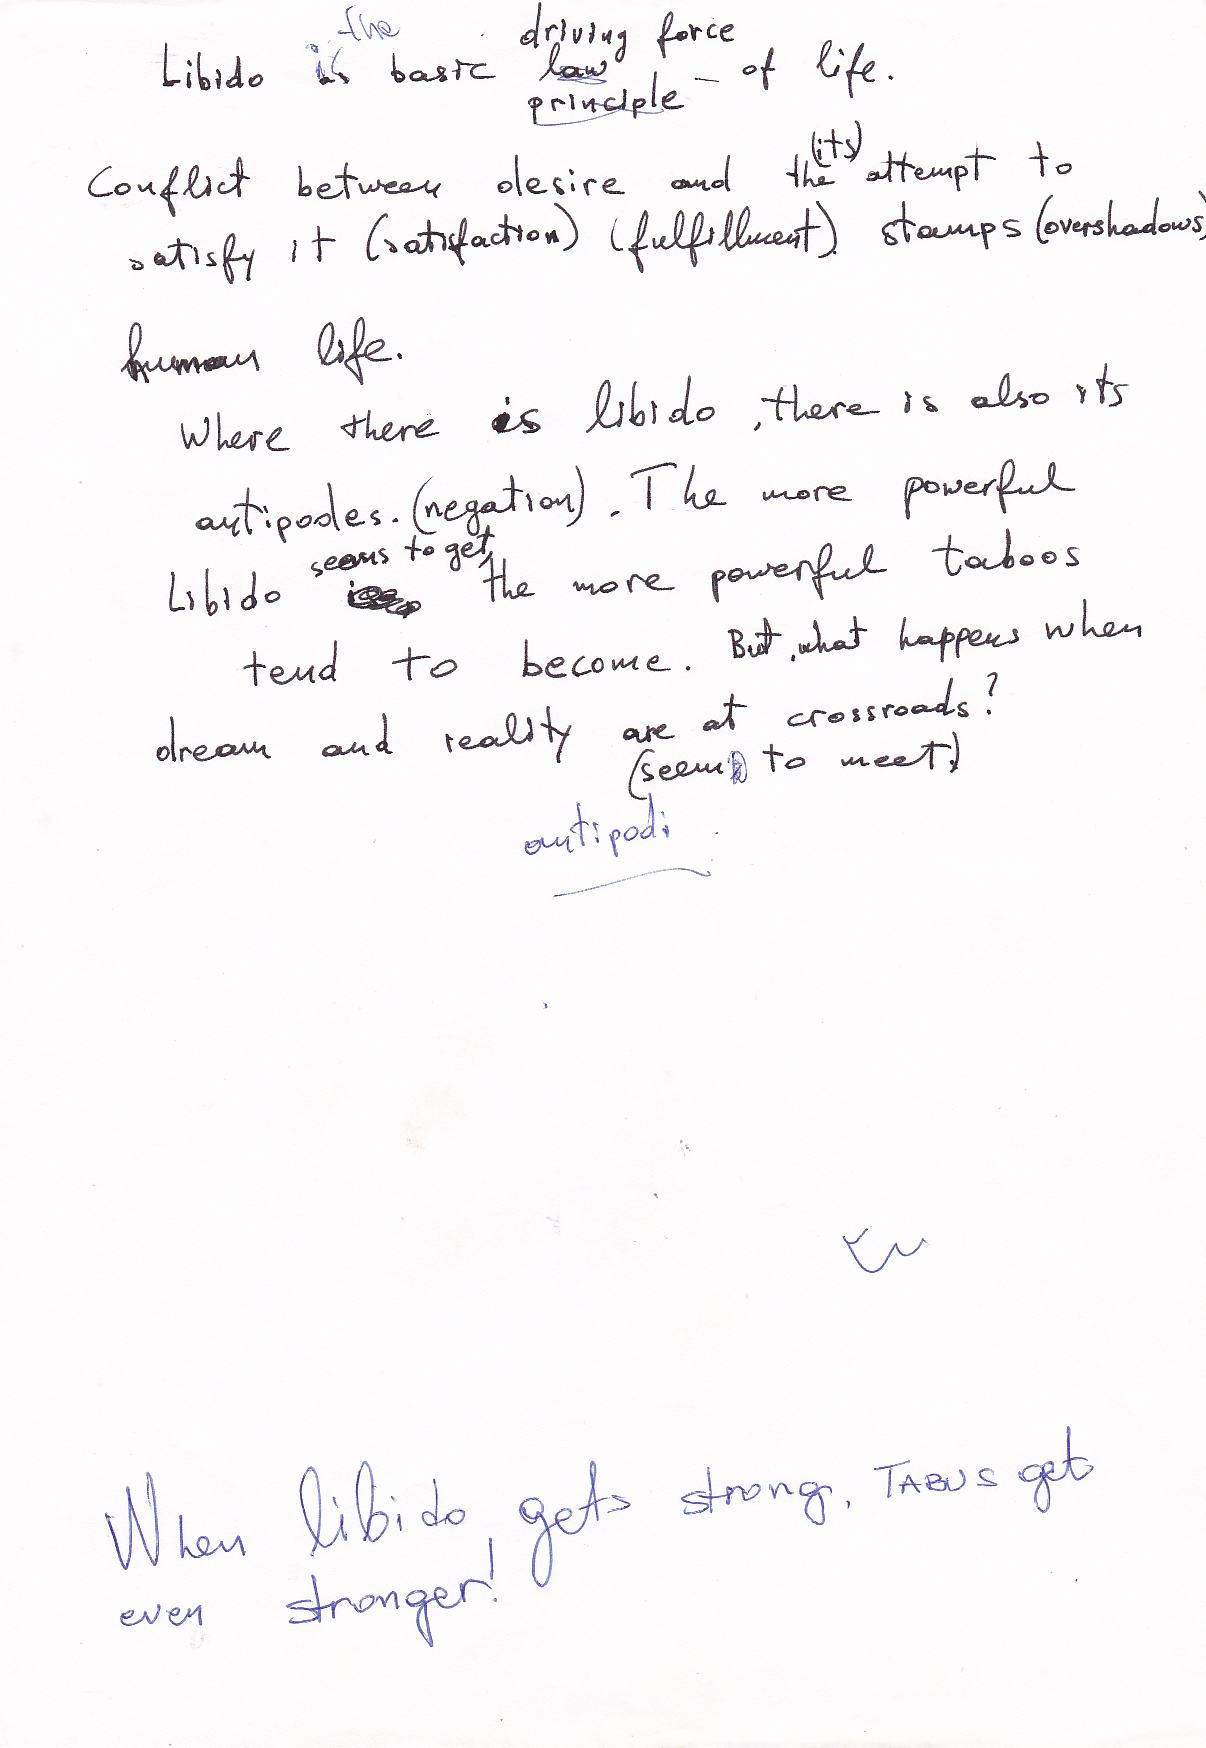 the driving force
Libido is basic law – of life.
principle
(its)
Conflict between desire and the attempt to
satisfy it (satisfaction) (fulfillment). stamps (overshadows)
human life.
Where there is libido, there is also its
antipodes. (negation). The more powerful
seems to get,
Libido the more powerful taboos
tend to become. But, what happens when
dream and reality are at crossroads?
(seem to meet)
antipodi
When libido, gets strong, TABUS get
even stronger!